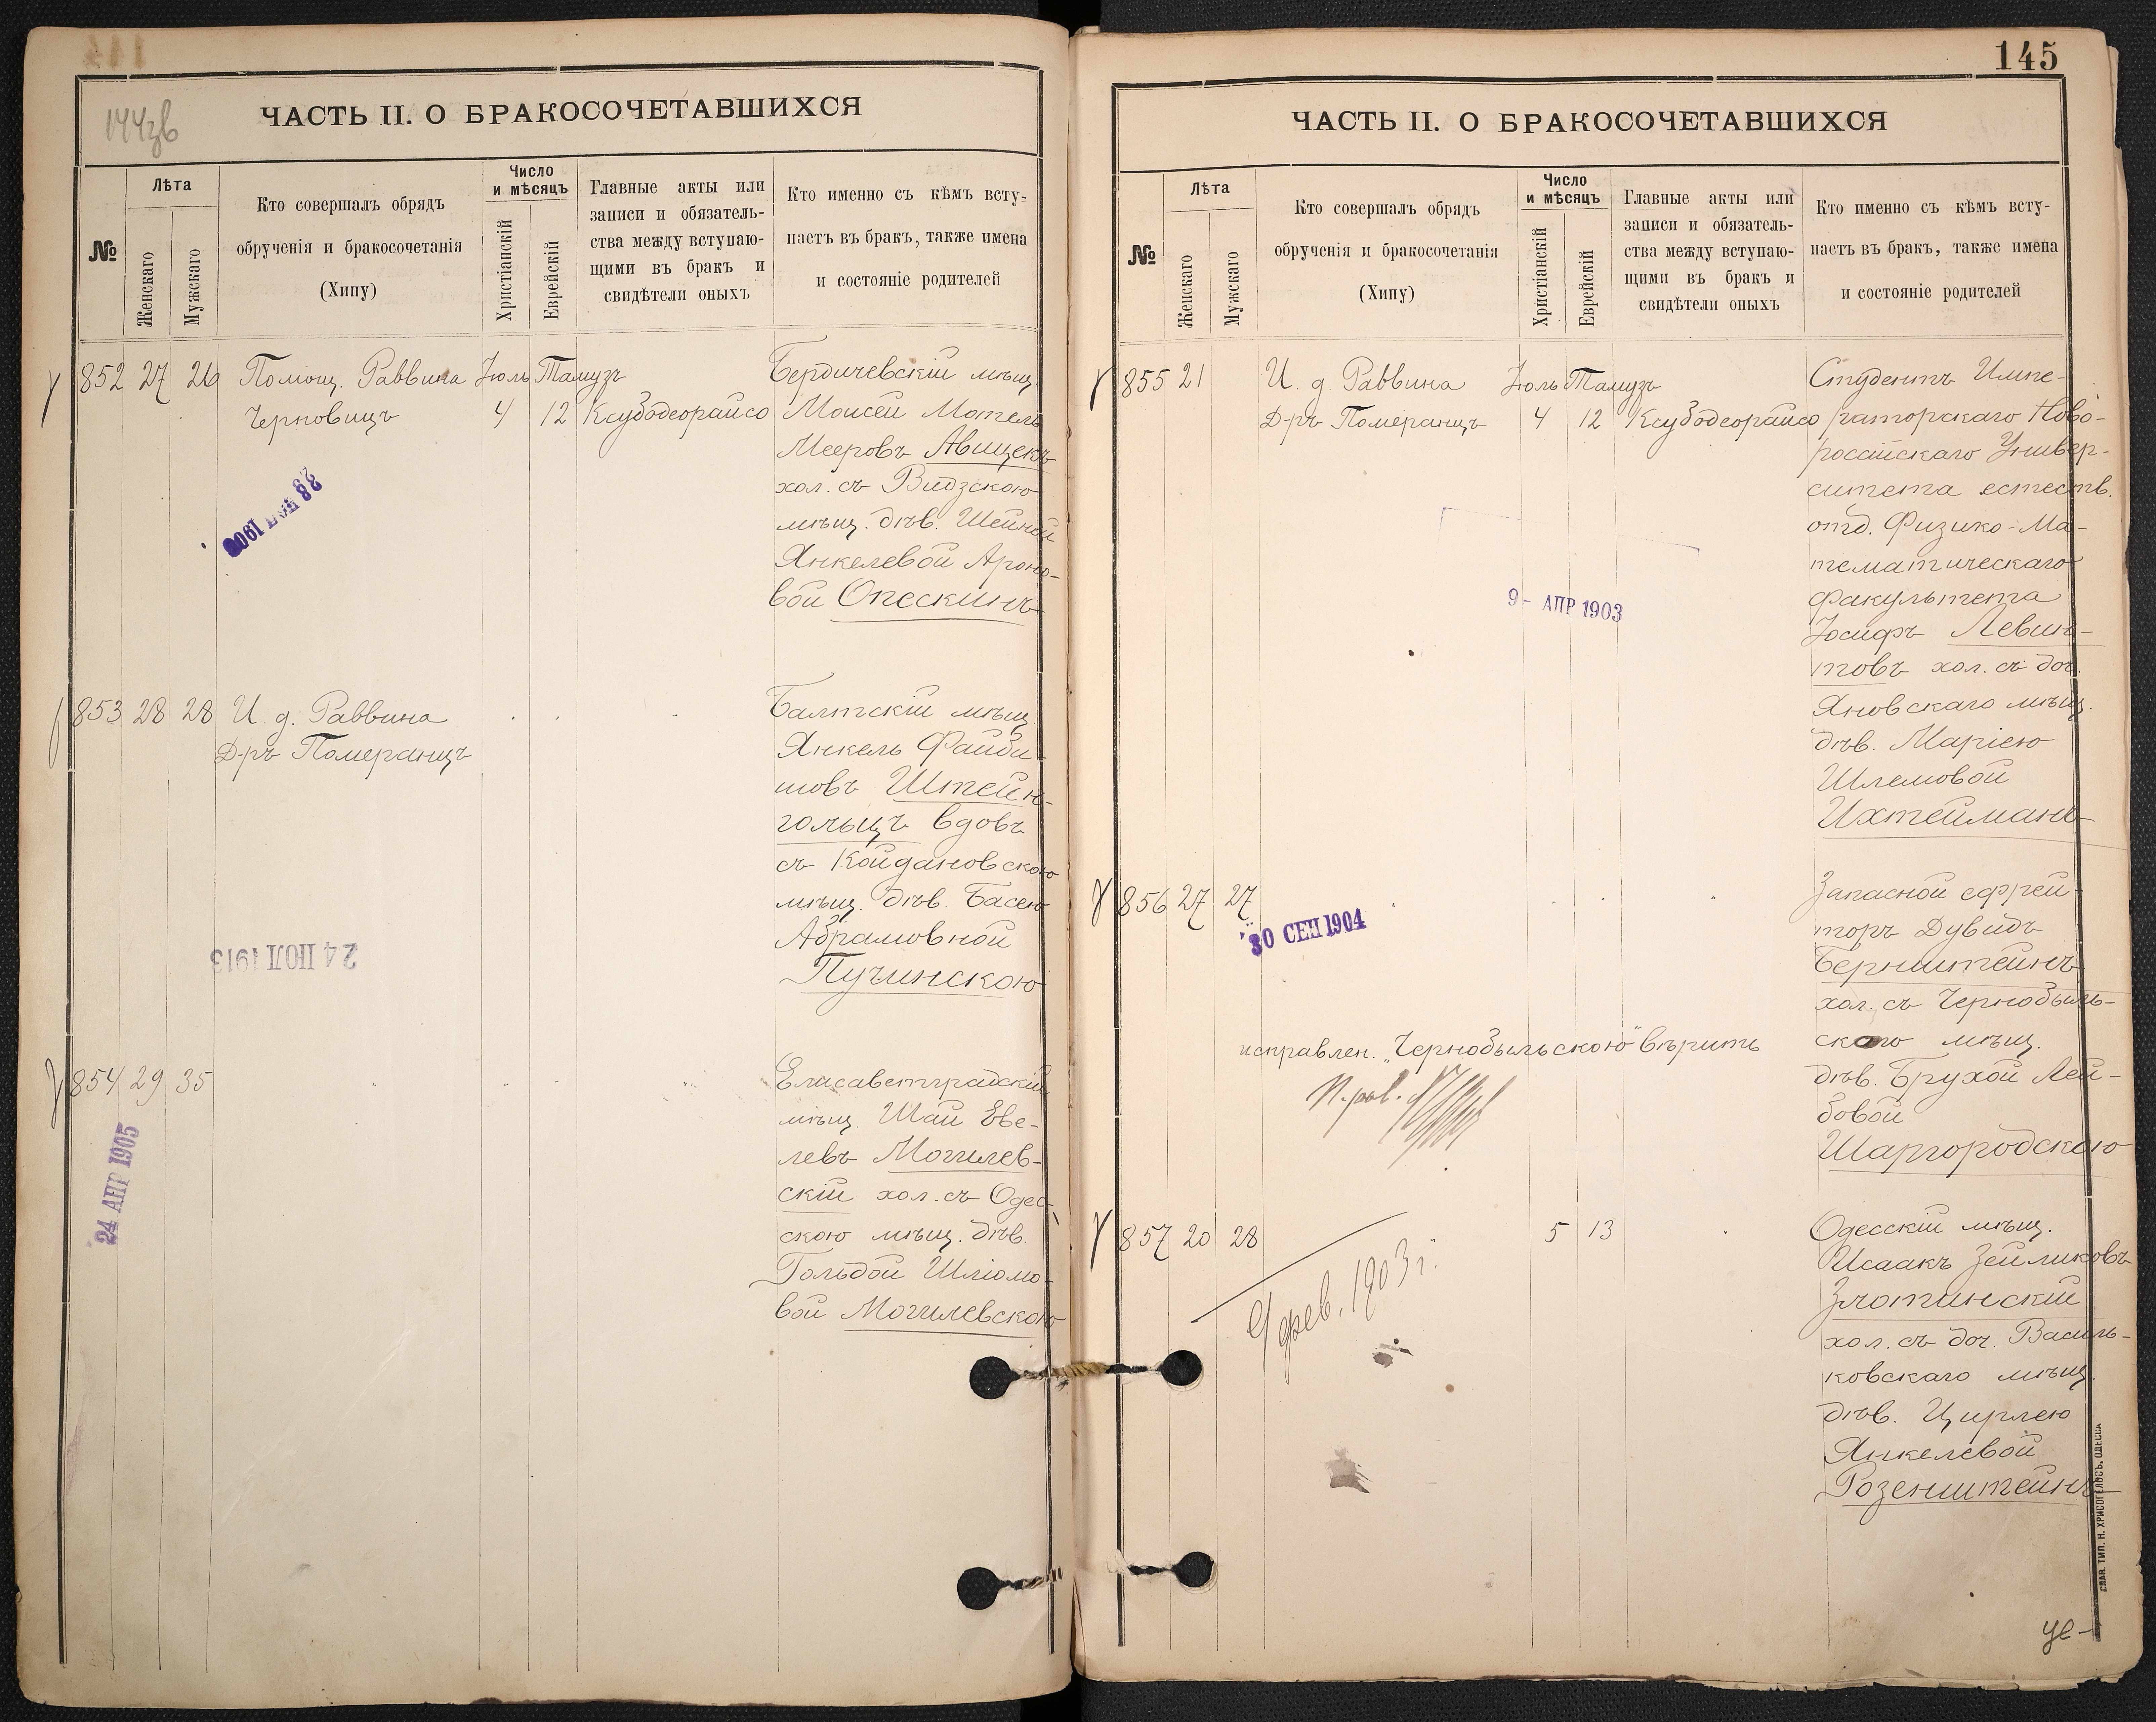 144зв
ЧАСТЬ II. О БРАКОСОЧЕТАВШИХСЯ
№
Лѣта
Женскаго
Мужскаго
Кто совершалъ обрядъ
обрученія и бракосочетанія
(Хипу)
Число
и мѣсяцъ
Христіанскій
Еврейскій
Главные акты или
записи и обязатель-
ства между вступаю-
щими въ бракъ и
свидѣтели оныхъ
Кто именно съ кѣмъ всту-
паетъ въ бракъ, также имена
и состояніе родителей
852 27 26 Помощ. Раввина Іюль Тамузъ
Черковицъ 4 12 Ксубодеорайсо
Бердичевскій мѣщ.
Моисей Мотель
Мееровъ Авищекъ
хол. съ Видзскою
мѣщ. дѣв. Шейной
Янкелевой Ароно-
вой Опескинъ
853 28 28 И. д. Раввина
Д-ръ Померанцъ
Балтскій мѣщ.
Янкель Файби-
шовъ Штейн-
гольцъ вдовъ
съ Койдановскою
мѣщ. дѣв. Басею
Абрамовной
Пучинскою
24 ІЮЛ 1913
854 29 35
Елисаветградскій
мѣщ. Шай Еве-
левъ Могилев-
скій хол. съ Одес-
скою мѣщ. дѣв.
Гольдой Шліомо-
вой Могилевскою
24 АПР 1905
145
ЧАСТЬ II. О БРАКОСОЧЕТАВШИХСЯ
№
Лѣта
Женскаго
Мужскаго
Кто совершалъ обрядъ
обрученія и бракосочетанія
(Хипу)
Число
и мѣсяцъ
Христіанскій
Еврейскій
Главные акты или
записи и обязатель-
ства между вступаю-
щими въ бракъ и
свидѣтели оныхъ
Кто именно съ кѣмъ всту-
паетъ въ бракъ, также имена
и состояніе родителей
855 21 И. д. Раввина Іюль Тамузъ
Д-ръ Померанцъ 4 12 Ксубодеорайсо
Студентъ Импе-
раторскаго Ново-
россійскаго Универ-
ситета естеств.
отд. Физико-Ма-
тематическаго
факультета
Іосифъ Левин-
товъ хол. съ доч.
Яновскаго мѣщ.
дѣв. Маріею
Шлемовой
Ихтейманъ
9- АПР 1903
856 27 27
30 СЕН 1904
Запасной ефрей-
торъ Дувидъ
Бернштейнъ
хол. съ Чернобыль-
скаго мѣщ.
дѣв. Брухой Лей-
бовой
Шаргородскою
исправлен. „Чернобыльскою" вѣрить
П. рав.
857 20 28 5 13
Одесскій мѣщ.
Исаакъ Зейликовъ
Злотинскій
хол. съ доч. Василь-
ковскаго мѣщ.
дѣв. Цирлею
Янкелевой
Розенштейнъ
9 фев. 1903 г.
СЛАВ. ТИП. Н. ХРИСОГЕЛОСЪ. ОДЕССА